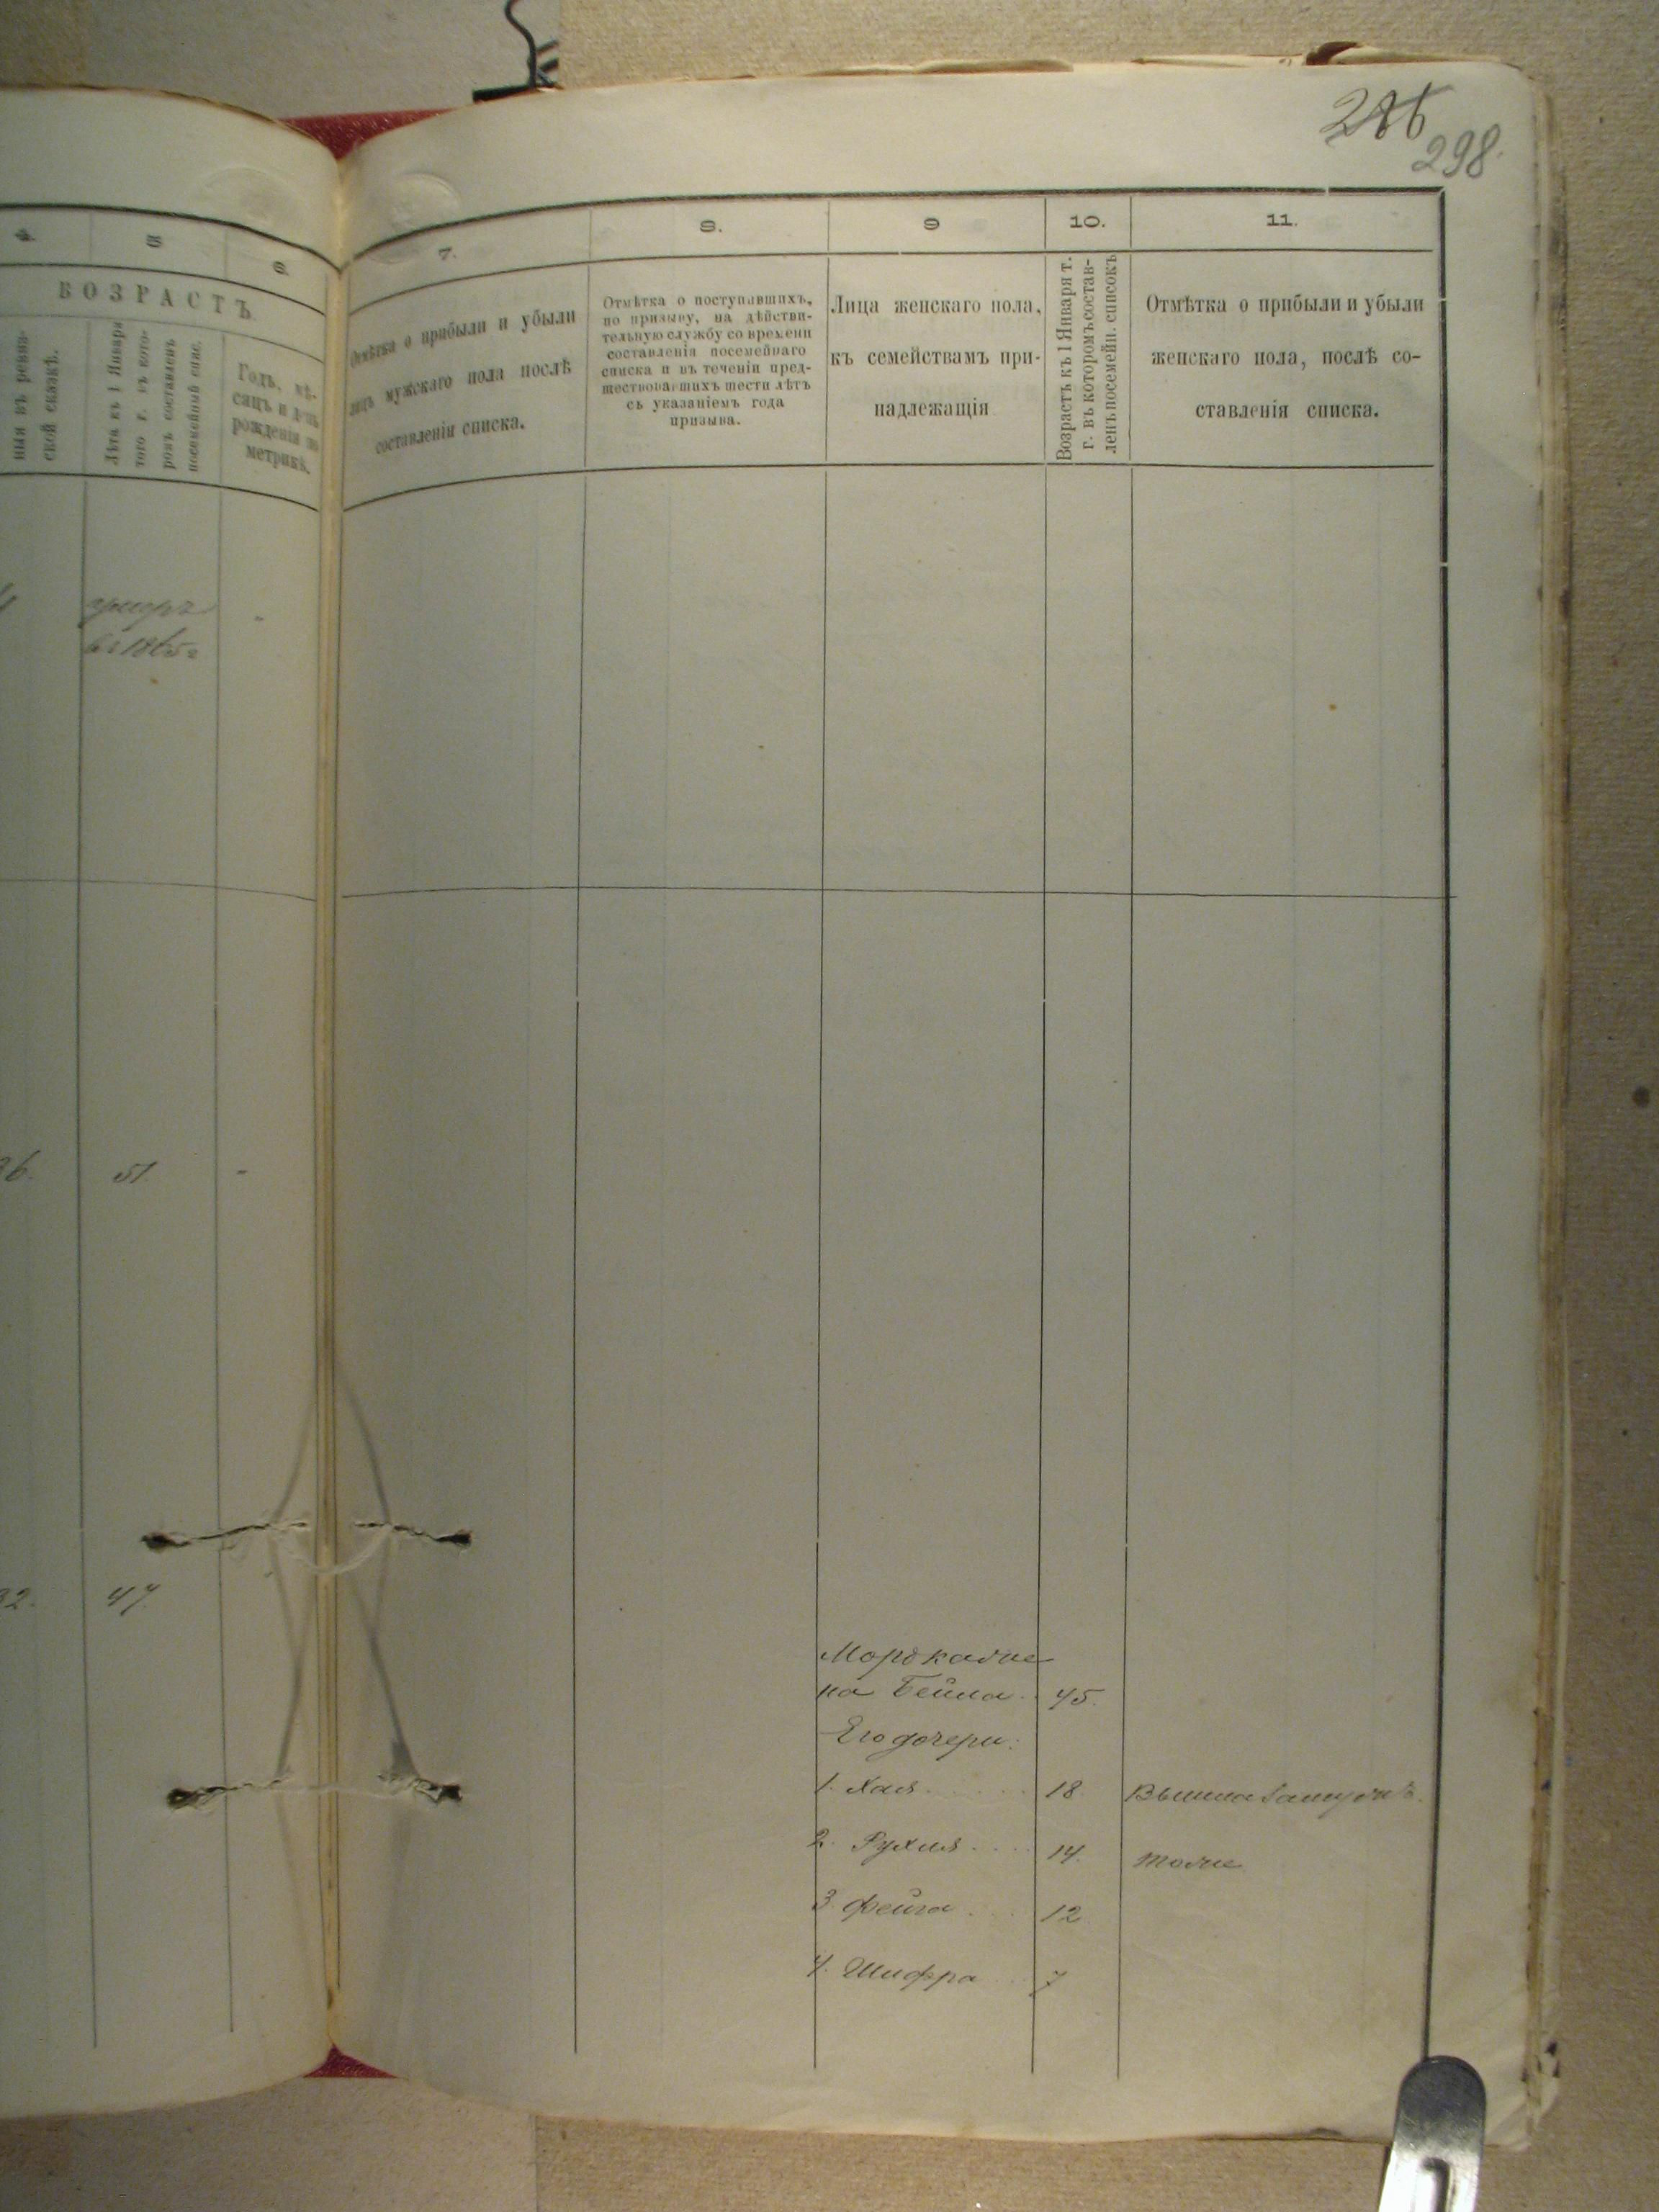 2
298.
4.
5
6.
ВОЗРАСТЪ
ныя въ ревиз-
ской сказкѣ.
Лѣта къ 1 Января
того г. въ кото-
ромъ составленъ
посемейный спис.
Годъ, мѣ-
сяцъ и день
рожденія по
метрикѣ.
умеръ
въ 1865 г
36. 51. -
32. 47.
7.
8.
9
10.
11.
Отмѣтка о прибыли и убыли
лицъ мужскаго пола послѣ
составленія списка.
Отмѣтка о поступавшихъ,
по призыву, на дѣйстви-
тельную службу со времени
составленія посемейнаго
списка и въ теченіи пред-
шествовавшихъ шести лѣтъ
съ указаніемъ года
призыва.
Лица женскаго пола,
къ семействамъ при-
надлежащія
Возрастъ къ 1 Января т.
г. въ которомъ состав-
ленъ посемейн. списокъ
Отмѣтка о прибыли и убыли
женскаго пола, послѣ со-
ставленія списка.
Мордка же
на Бейла . 45.
Его дочери:
1. Хая 18 Вышла замужъ.
2. Рухля 14. тоже
3. Фейга 12
4. Шифра 7